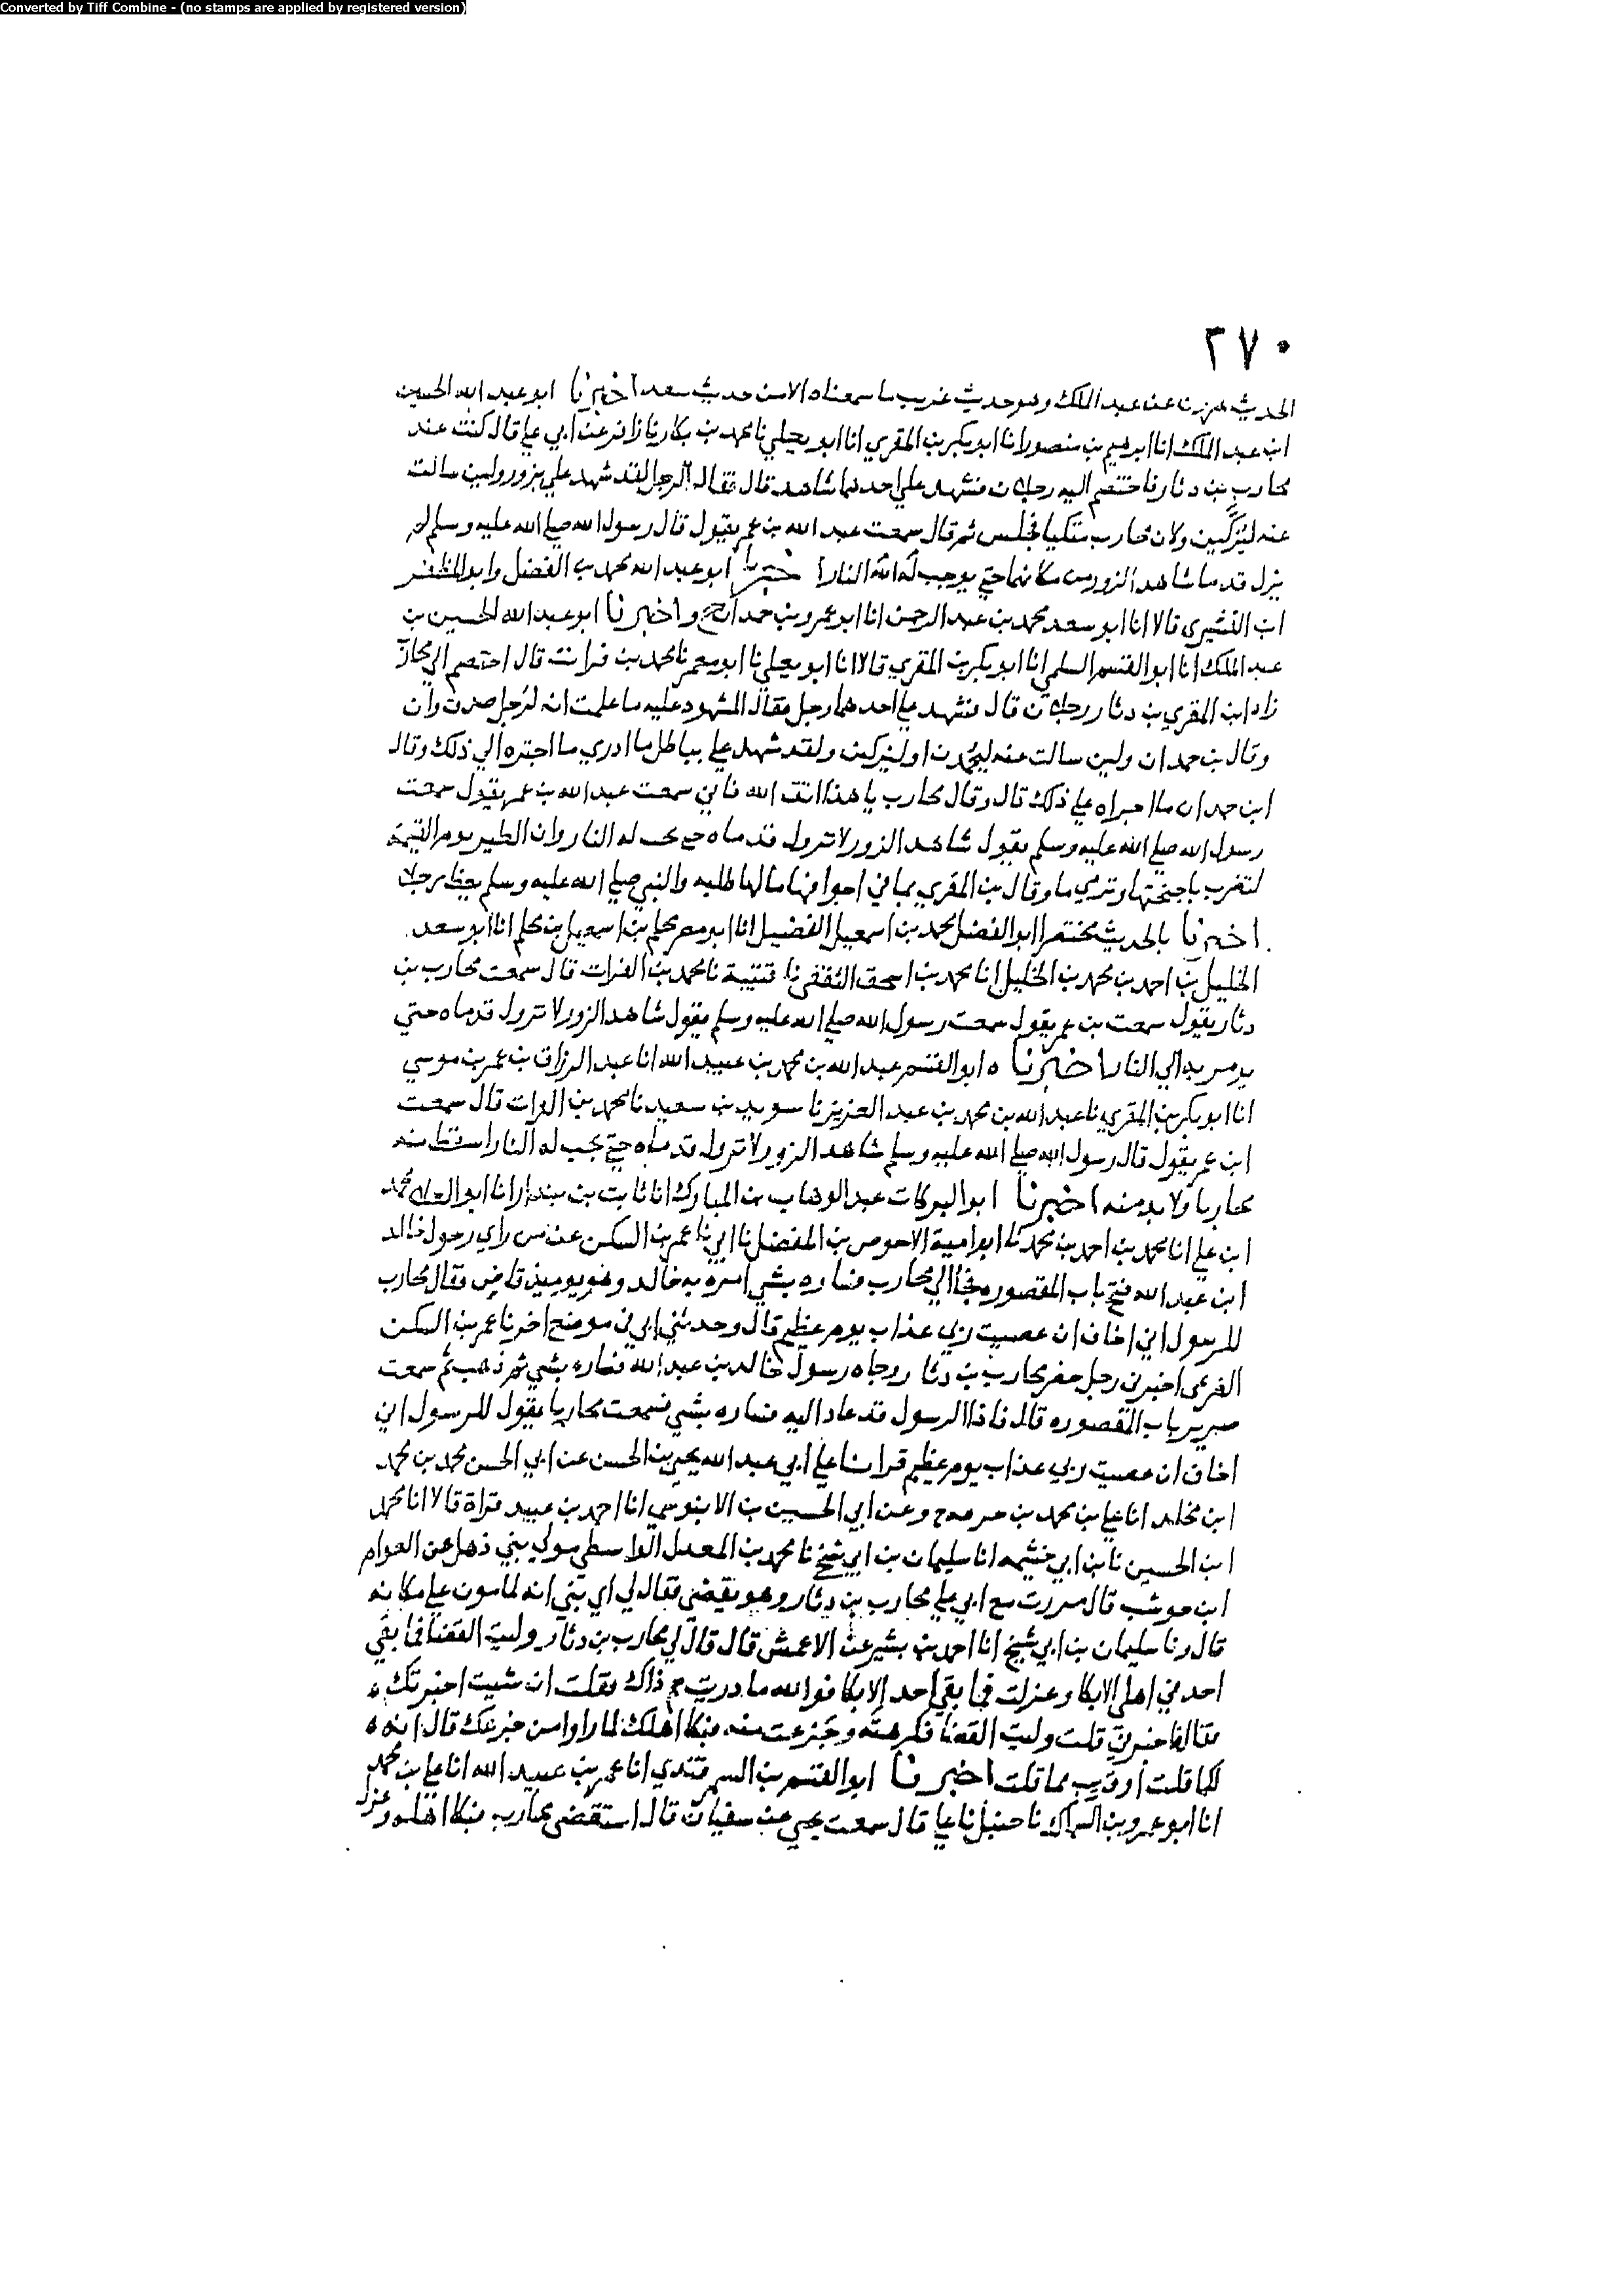 Converted by Tiff Combine - (no stamps are applied by registered version)
٢٧٠
الحديث عن عبد الملك وهو حديث غريب ما سمعناه الا من حديث سعد اخبرنا ابو عبد الله الحسين
ابن عبد الملك انا ابرهيم بن منصور انا ابو بكر بن المقري انا ابو يعلي نا محمد بن بكار نا زافر عن ابي علي قال كنت عند
محارب بن دثار فاختصم اليه رجلان فشهد علي احدهما شاهد قال فقال الرجل لقد شهد علي بزور ولين سالت
عنه ليزكين وكان محارب متكيا فجلس ثم قال سمعت عبد الله بن عمر يقول قال رسول الله صلي الله عليه وسلم لم
يزل قدما شاهد الزور من مكانهما حتي يوجب الله له النار اخبرنا ابو عبد الله محمد بن الفضل وابو المظفر
ابن القشيري قالا انا ابو سعد محمد بن عبد الرحمن انا ابو عمرو بن حمدان ح واخبرنا ابو عبد الله الحسين بن
عبد الملك انا ابو القسم السلمي انا ابو بكر بن المقري قالا انا ابو يعلي نا ابو معمر نا محمد بن فرات قال اختصم الي محارب
زاد ابن المقري بن دثار رجلان قال فشهد علي احدهما رجل فقال المشهود عليه ما علمت انه لرجل صدق وان
وقال بن حمدان ولين سالت عنه ليحمدن او ليزكين ولقد شهد علي بباطل ما ادري ما اجتره الي ذلك وقال
ابن حمدان ما اجراه علي ذلك قال وقال محارب يا هذا اتق الله فاني سمعت عبد الله بن عمر يقول سمعت
رسول الله صلي الله عليه وسلم يقول شاهد الزور لا تزول قدماه حتي تجب له النار وان الطير يوم القيمة
لتضرب باجنحتها وترمي ما وقال بن المقري بما في اجوافها ما لها طلبه والنبي صلي الله عليه وسلم يعظ رجلا
اخبرنا بالحديث مختصرا ابو الفضل محمد بن اسمعيل الفضيل انا ابو مضر محلم بن اسمعيل بن محلم انا ابو سعد
الخليل بن احمد بن محمد بن الخليل انا محمد بن اسحق الثقفي نا قتيبة نا محمد بن الفرات قال سمعت محارب بن
دثار يقول سمعت بن عمر يقول سمعت رسول الله صلي الله عليه وسلم يقول شاهد الزور لا تزول قدماه حتي
يومر به الي النار اخبرنا ه ابو القسم عبد الله بن محمد بن عبيد الله انا عبد الرزاق بن عمر بن موسي
انا ابو بكر بن المقري نا عبد الله بن محمد بن عبد العزيز نا سويد بن سعيد نا محمد بن الفرات قال سمعت
ابن عمر يقول قال رسول الله صلي الله عليه وسلم شاهد الزور لا تزول قدماه حتي يجب له النار اسقط منه
محاربا ولا بد منه اخبرنا ابو البركات عبد الوهاب بن المبارك انا ثابت بن بندار انا ابو العلاء محمد
ابن علي انا محمد بن احمد بن محمد نا ابو امية الاحوص بن المفضل نا ابي نا عمر بن السكن عن من راي رسول خالد
ابن عبد الله فتح باب المقصوره فجا الي محارب فساره بشي امره به خالد وهو يوميذ قاض فقال محارب
للرسول اني اخاف ان عصيت ربي عذاب يوم عظيم قال وحدثني ابي في موضع اخر نا عمر بن السكن
القرشي اخبرني رجل حضر محارب بن دثار وجاه رسول خالد بن عبد الله فساره بشي ثم ذهب ثم سمعت
صرير باب المقصوره قال فاذا الرسول قد عاد اليه فساره بشي فسمعت محاربا يقول للرسول اني
اخاف ان عصيت ربي عذاب يوم عظيم قرات علي ابي عبد الله يحيي بن الحسن عن ابي الحسن محمد بن محمد
ابن مخلد انا علي بن محمد بن ح وعن ابي الحسين بن الابنوسي انا احمد بن عبيد قراة قالا انا محمد
ابن الحسين نا بن ابي خيثمه انا سليمان بن ابي شيخ نا محمد بن المعدل الواسطي مولي بني ذهل عن العوام
ابن حوشب قال مررت مع ابي علي محارب بن دثار وهو يقضي فقال لي اي بني انه لمامون علي مكانه
قال ونا سليمان بن ابي شيخ انا احمد بن بشير عن الاعمش قال قال لي محارب بن دثار وليت القضا فما بقي
احد في اهلي الا بكا وعزلت فما بقي احد الا بكا فوالله ما دريت م ذاك فقلت ان شيت اخبرتك
فقال اخبرني قلت وليت القضا فكرهته وجزعت منه فبكا اهلك لما راوا من جزعك قال انه
لكما قلت او قريب مما قلت اخبرنا ابو القسم بن السمرقندي انا عمر بن عبيد الله انا علي بن محمد
انا ابو عمرو بن السماك نا حنبل نا علي قال سمعت يحيي عن سفيان قال استقضي محارب فبكا اهله وعزل